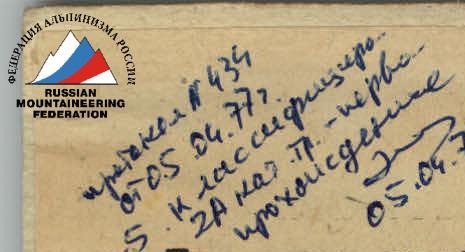 ФЕДЕРАЦИЯ АЛЬПИНИЗМА РОССИИ
RUSSIAN
MOUNTAINEERING
FEDERATION
протокол № 434
от 05.04.77г.
5. Классифициро-
2А кат. тр. - перво-
прохождение
05.04.7